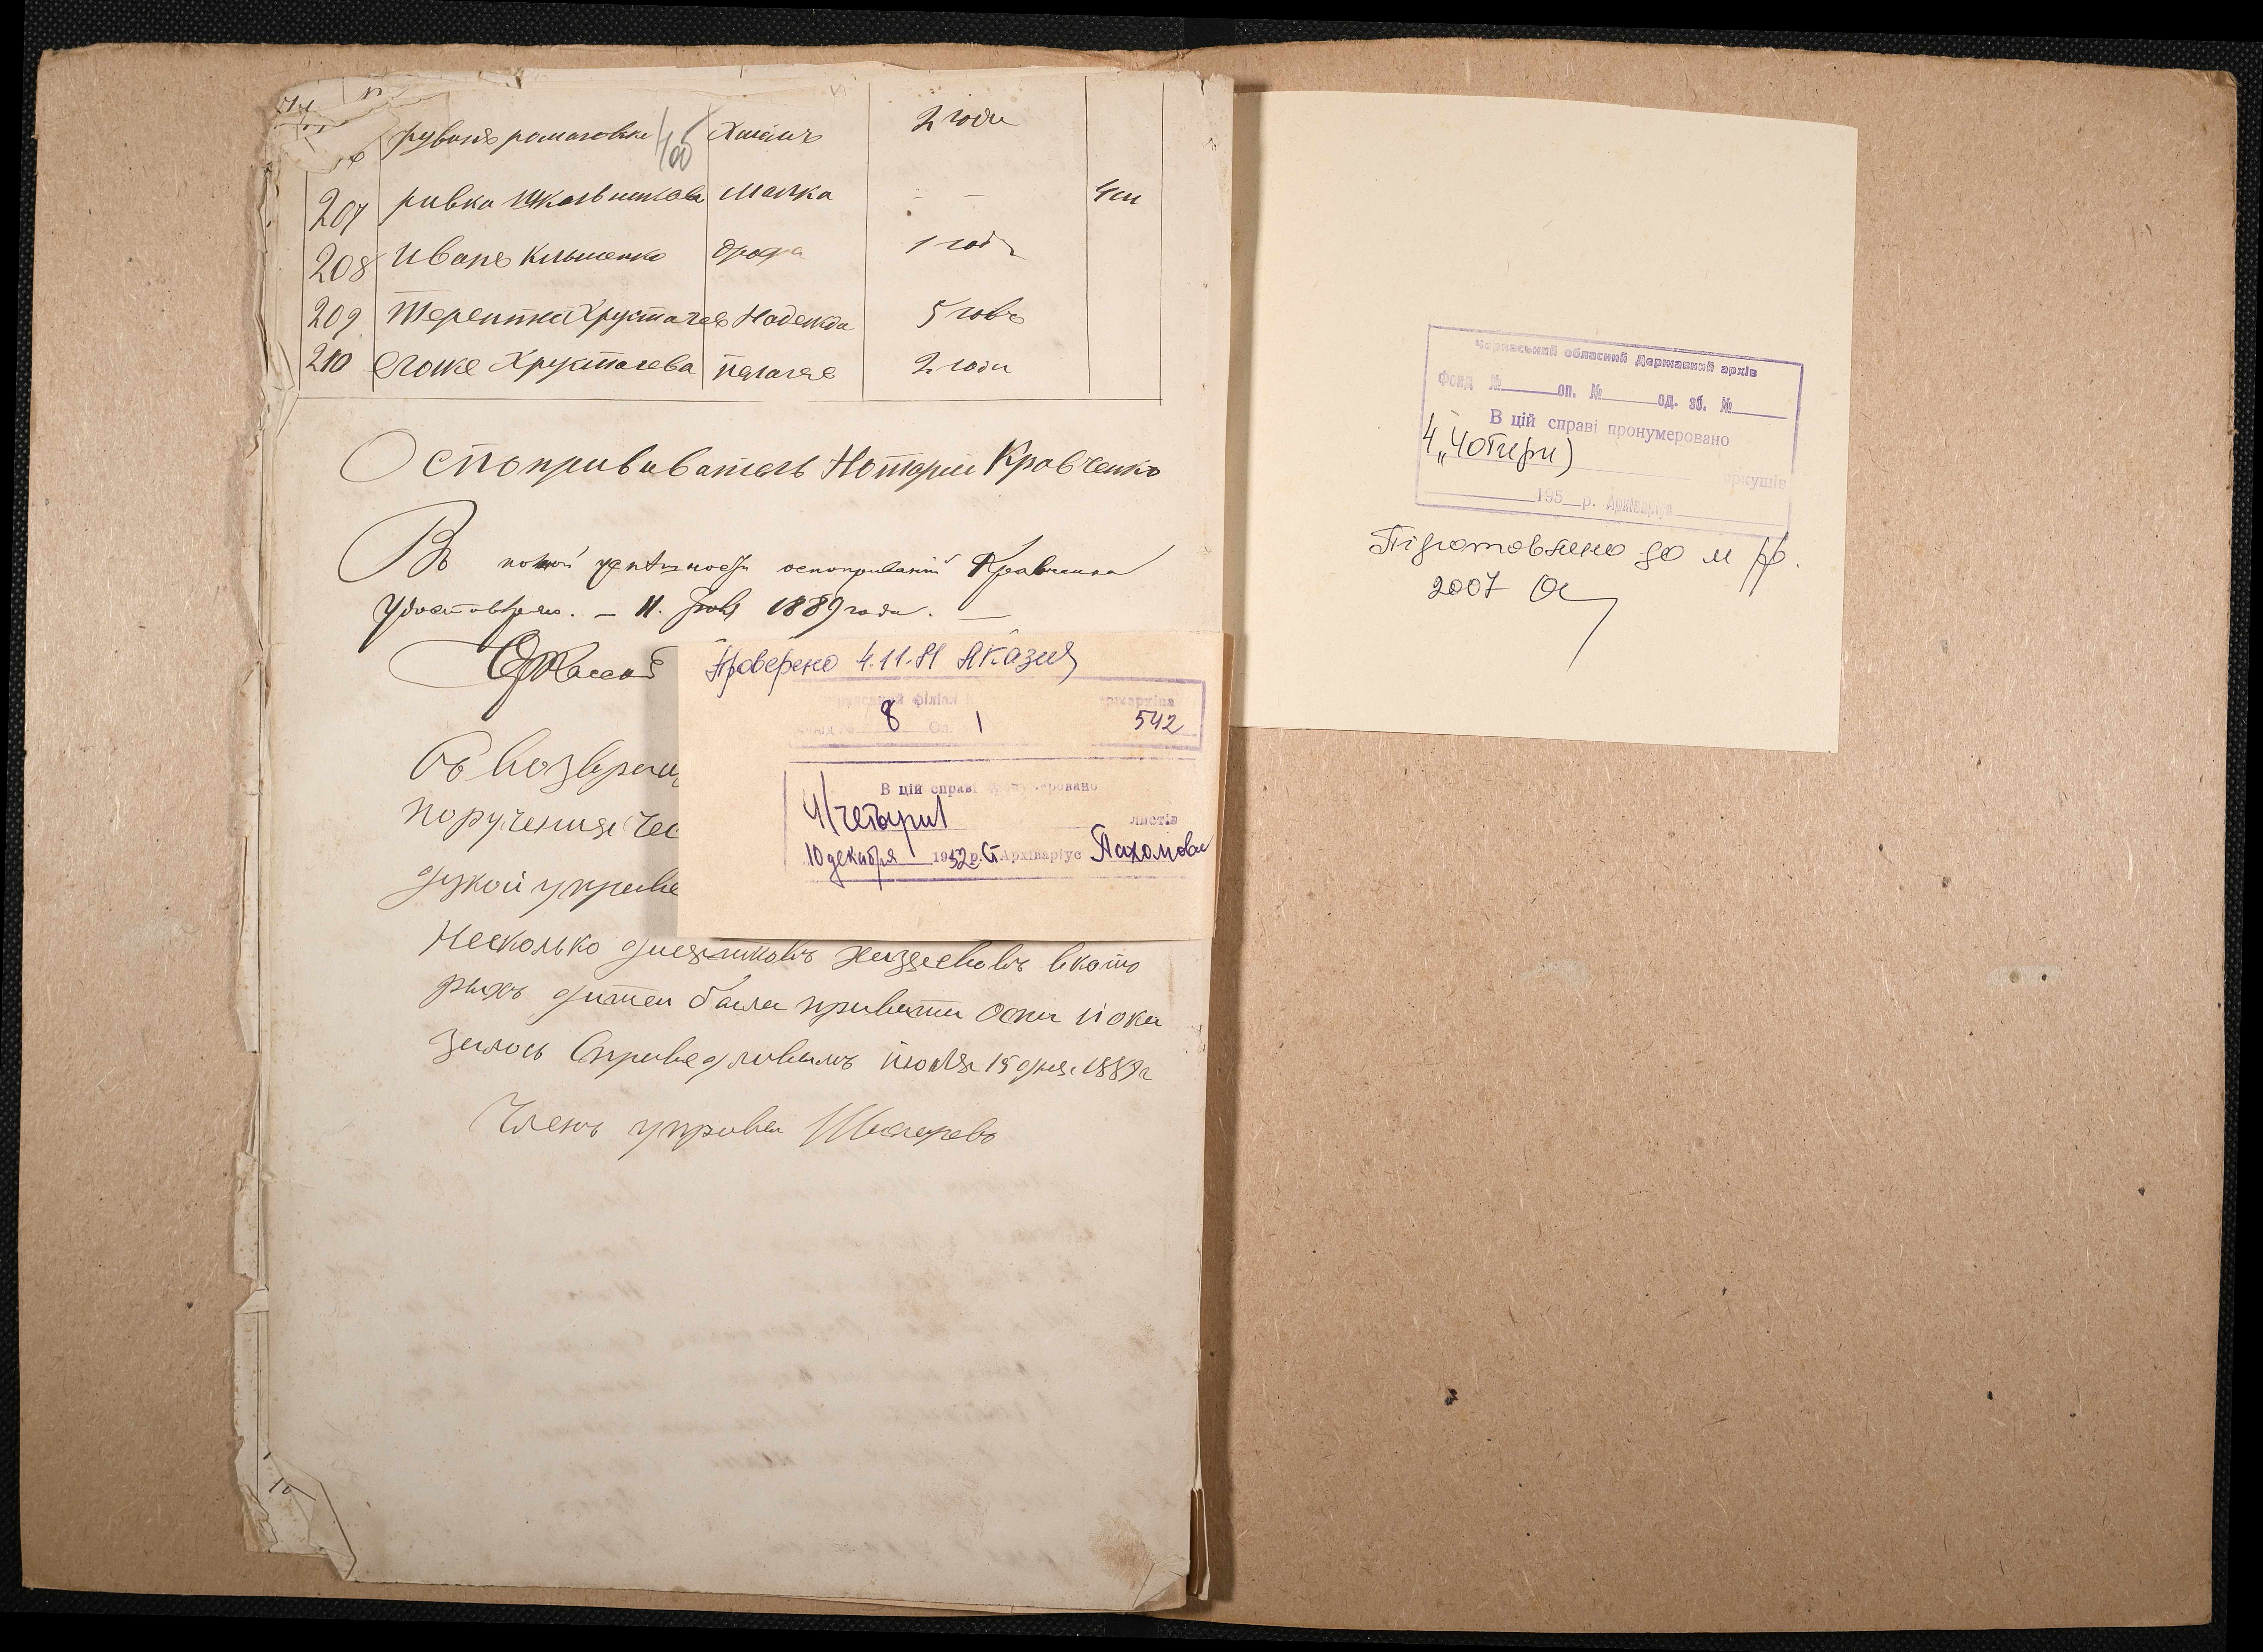 рувинъ ромаговски Хаимъ 2 годи
4об
207 ривка Школьникова Малка - - 4 ии
208 Иванъ Клыменко 1 годъ
209 Терентий Хрусталев Надежда 5 годъ
210 Хрусталева пелагея 2 годи
Оспопрививатель Нотарии Кравченко
Въ оспопрививаній Кравченка
Удостовѣряю. – 11. 1889 года. –
Въ возвращ
поручения
дукой управе
Несколько хозяевовъ вкото
рыхъ дитеи была привита оспа и ока
залось Справедливымъ июля 15 дня 1889 г
Членъ управы
Проверено 4.11.81
філіал держархіва
Фонд № 8 Оп. 1 542
В цій справі пронумеровано
4 (четыри) листів
10 декабря 1952 р. Ст Архіваріус Пахомова
Черкаський обласний Державний архів
Фонд № оп. № од. зб. №
В цій справі пронумеровано
4 „Чотири) аркушів
195 р. Архіваріус
Підготовлено до м ф.
2007